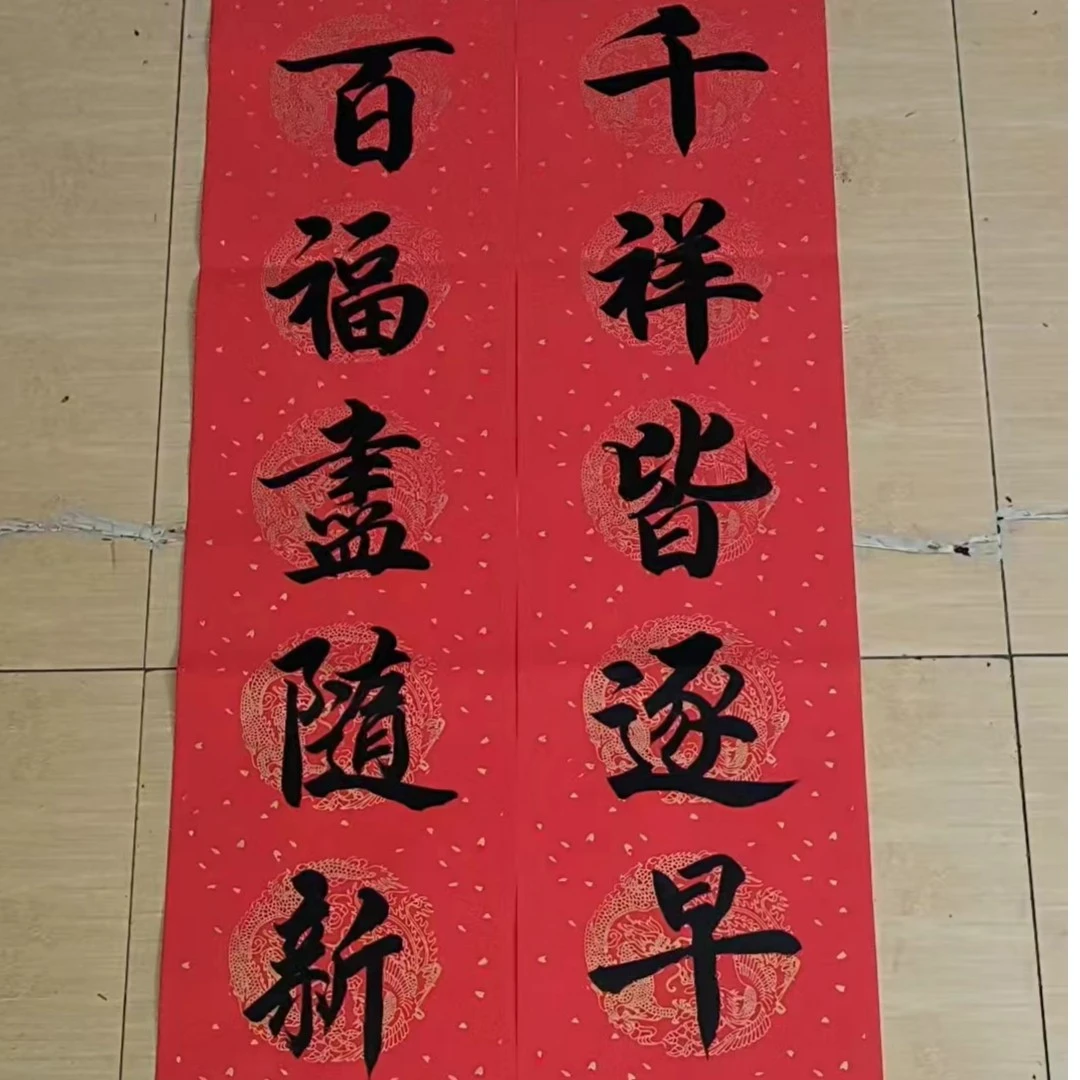 千祥皆逐早
百福盡隨新